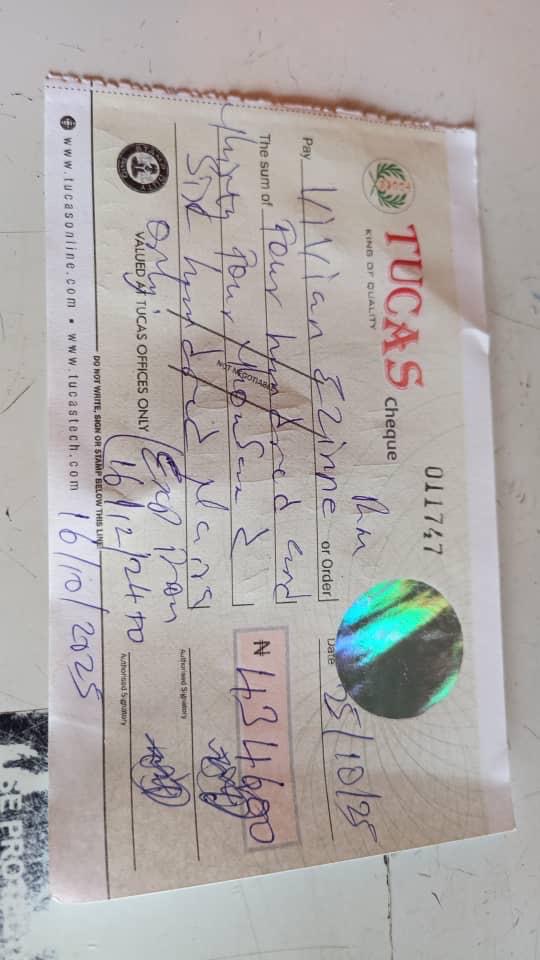 TUCAS cheque
KING OF QUALITY
011747
Date 25/10/25
Pay Vivian Ezinne or Order
The sum of Four hundred and
thirty four thousand
Six hundred naira
only
₦ 434600
NOT NEGOTIABLE
VALUED AT TUCAS OFFICES ONLY
16/12/24 to
16/10/2025
Authorised Signatory
Authorised Signatory
DO NOT WRITE, SIGN OR STAMP BELOW THIS LINE
www.tucasonline.com • www.tucastech.com